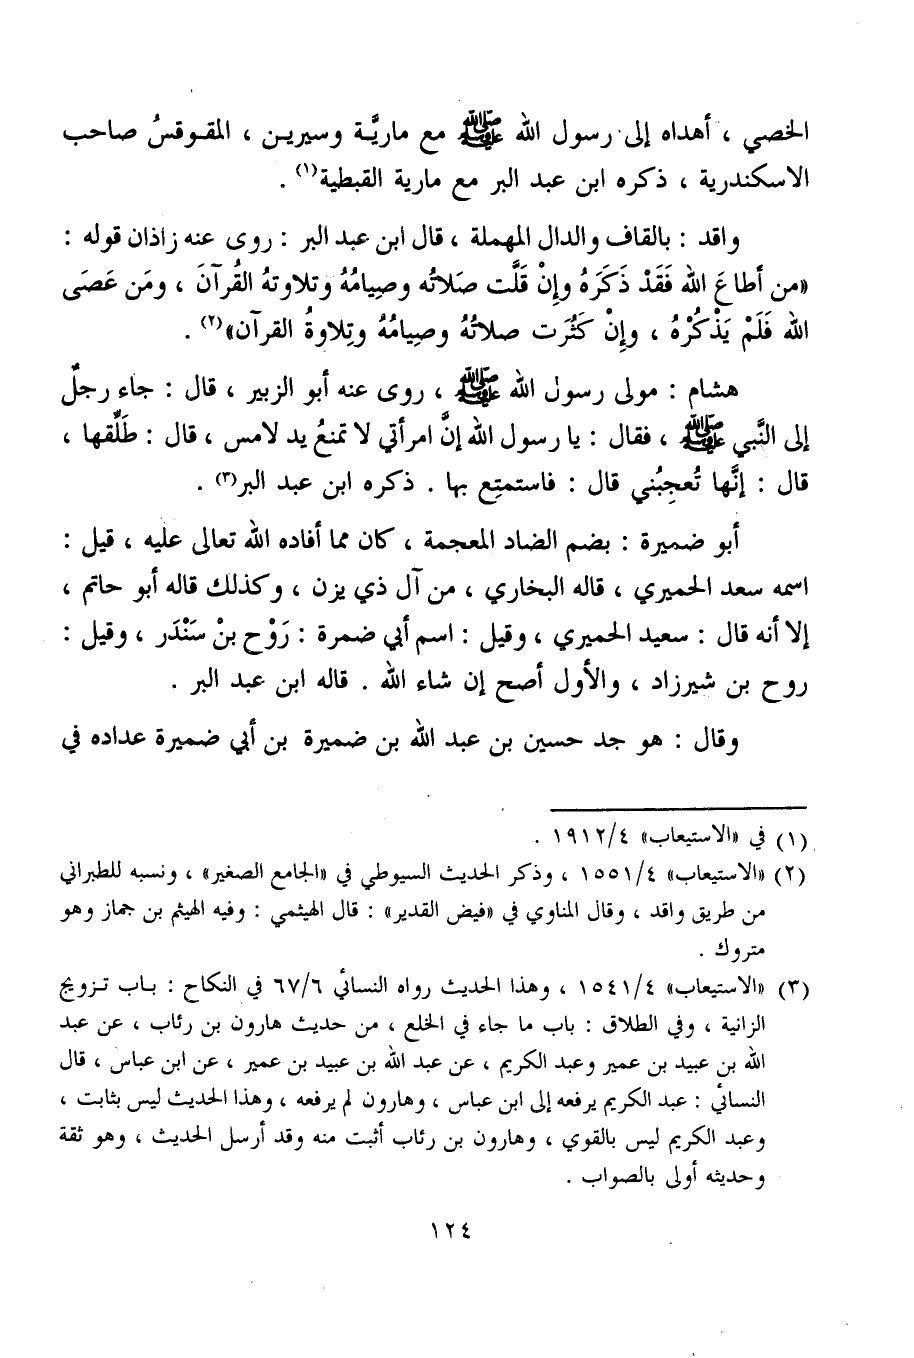 الخصي ، أهداه إلى رسول الله ﷺ مع ماريَّة وسيرين ، المقوقسُ صاحب
الاسكندرية ، ذكره ابن عبد البر مع مارية القبطية(١) .
واقد : بالقاف والدال المهملة ، قال ابن عبد البر : روى عنه زاذان قوله :
«من أطاعَ الله فَقَدْ ذَكَرَهُ وإِنْ قَلَّت صَلاتُه وصِيامُهُ وتلاوتهُ القُرآنَ ، ومَن عَصَى
الله فَلَمْ يَذْكُرْهُ ، وإِنْ كَثُرَت صلاتُهُ وصِيامُهُ وتِلاوةُ القرآن»(٢) .
هشام : مولى رسول الله ﷺ ، روى عنه أبو الزبير ، قال : جاء رجلٌ
إلى النَّبي ﷺ ، فقال : يا رسول الله إنَّ امرأتي لا تمنعُ يد لامس ، قال : طَلِّقها ،
قال : إنَّها تُعجِبُني قال : فاستمتِع بها . ذكره ابن عبد البر(٣) .
أبو ضميرة : بضم الضاد المعجمة ، كان مما أفاده الله تعالى عليه ، قيل :
اسمه سعد الحميري ، قاله البخاري ، من آل ذي يزن ، وكذلك قاله أبو حاتم ،
إلا أنه قال : سعيد الحميري ، وقيل : اسم أبي ضمرة : رَوْح بنْ سَنْدَر ، وقيل :
روح بن شيرزاد ، والأول أصح إن شاء الله . قاله ابن عبد البر .
وقال : هو جد حسين بن عبد الله بن ضميرة بن أبي ضميرة عداده في
(١) في «الاستيعاب» ١٩١٢/٤ .
(٢) «الاستيعاب» ١٥٥١/٤ ، وذكر الحديث السيوطي في «الجامع الصغير» ، ونسبه للطبراني
من طريق واقد ، وقال المناوي في «فيض القدير» : قال الهيثمي : وفيه الهيثم بن جماز وهو
متروك .
(٣) «الاستيعاب» ١٥٤١/٤ ، وهذا الحديث رواه النسائي ٦٧/٦ في النكاح : باب تزويج
الزانية ، وفي الطلاق : باب ما جاء في الخلع ، من حديث هارون بن رئاب ، عن عبد
الله بن عبيد بن عمير وعبد الكريم ، عن عبد الله بن عبيد بن عمير ، عن ابن عباس ، قال
النسائي : عبد الكريم يرفعه إلى ابن عباس ، وهارون لم يرفعه ، وهذا الحديث ليس بثابت ،
وعبد الكريم ليس بالقوي ، وهارون بن رئاب أثبت منه وقد أرسل الحديث ، وهو ثقة
وحديثه أولى بالصواب .
١٢٤